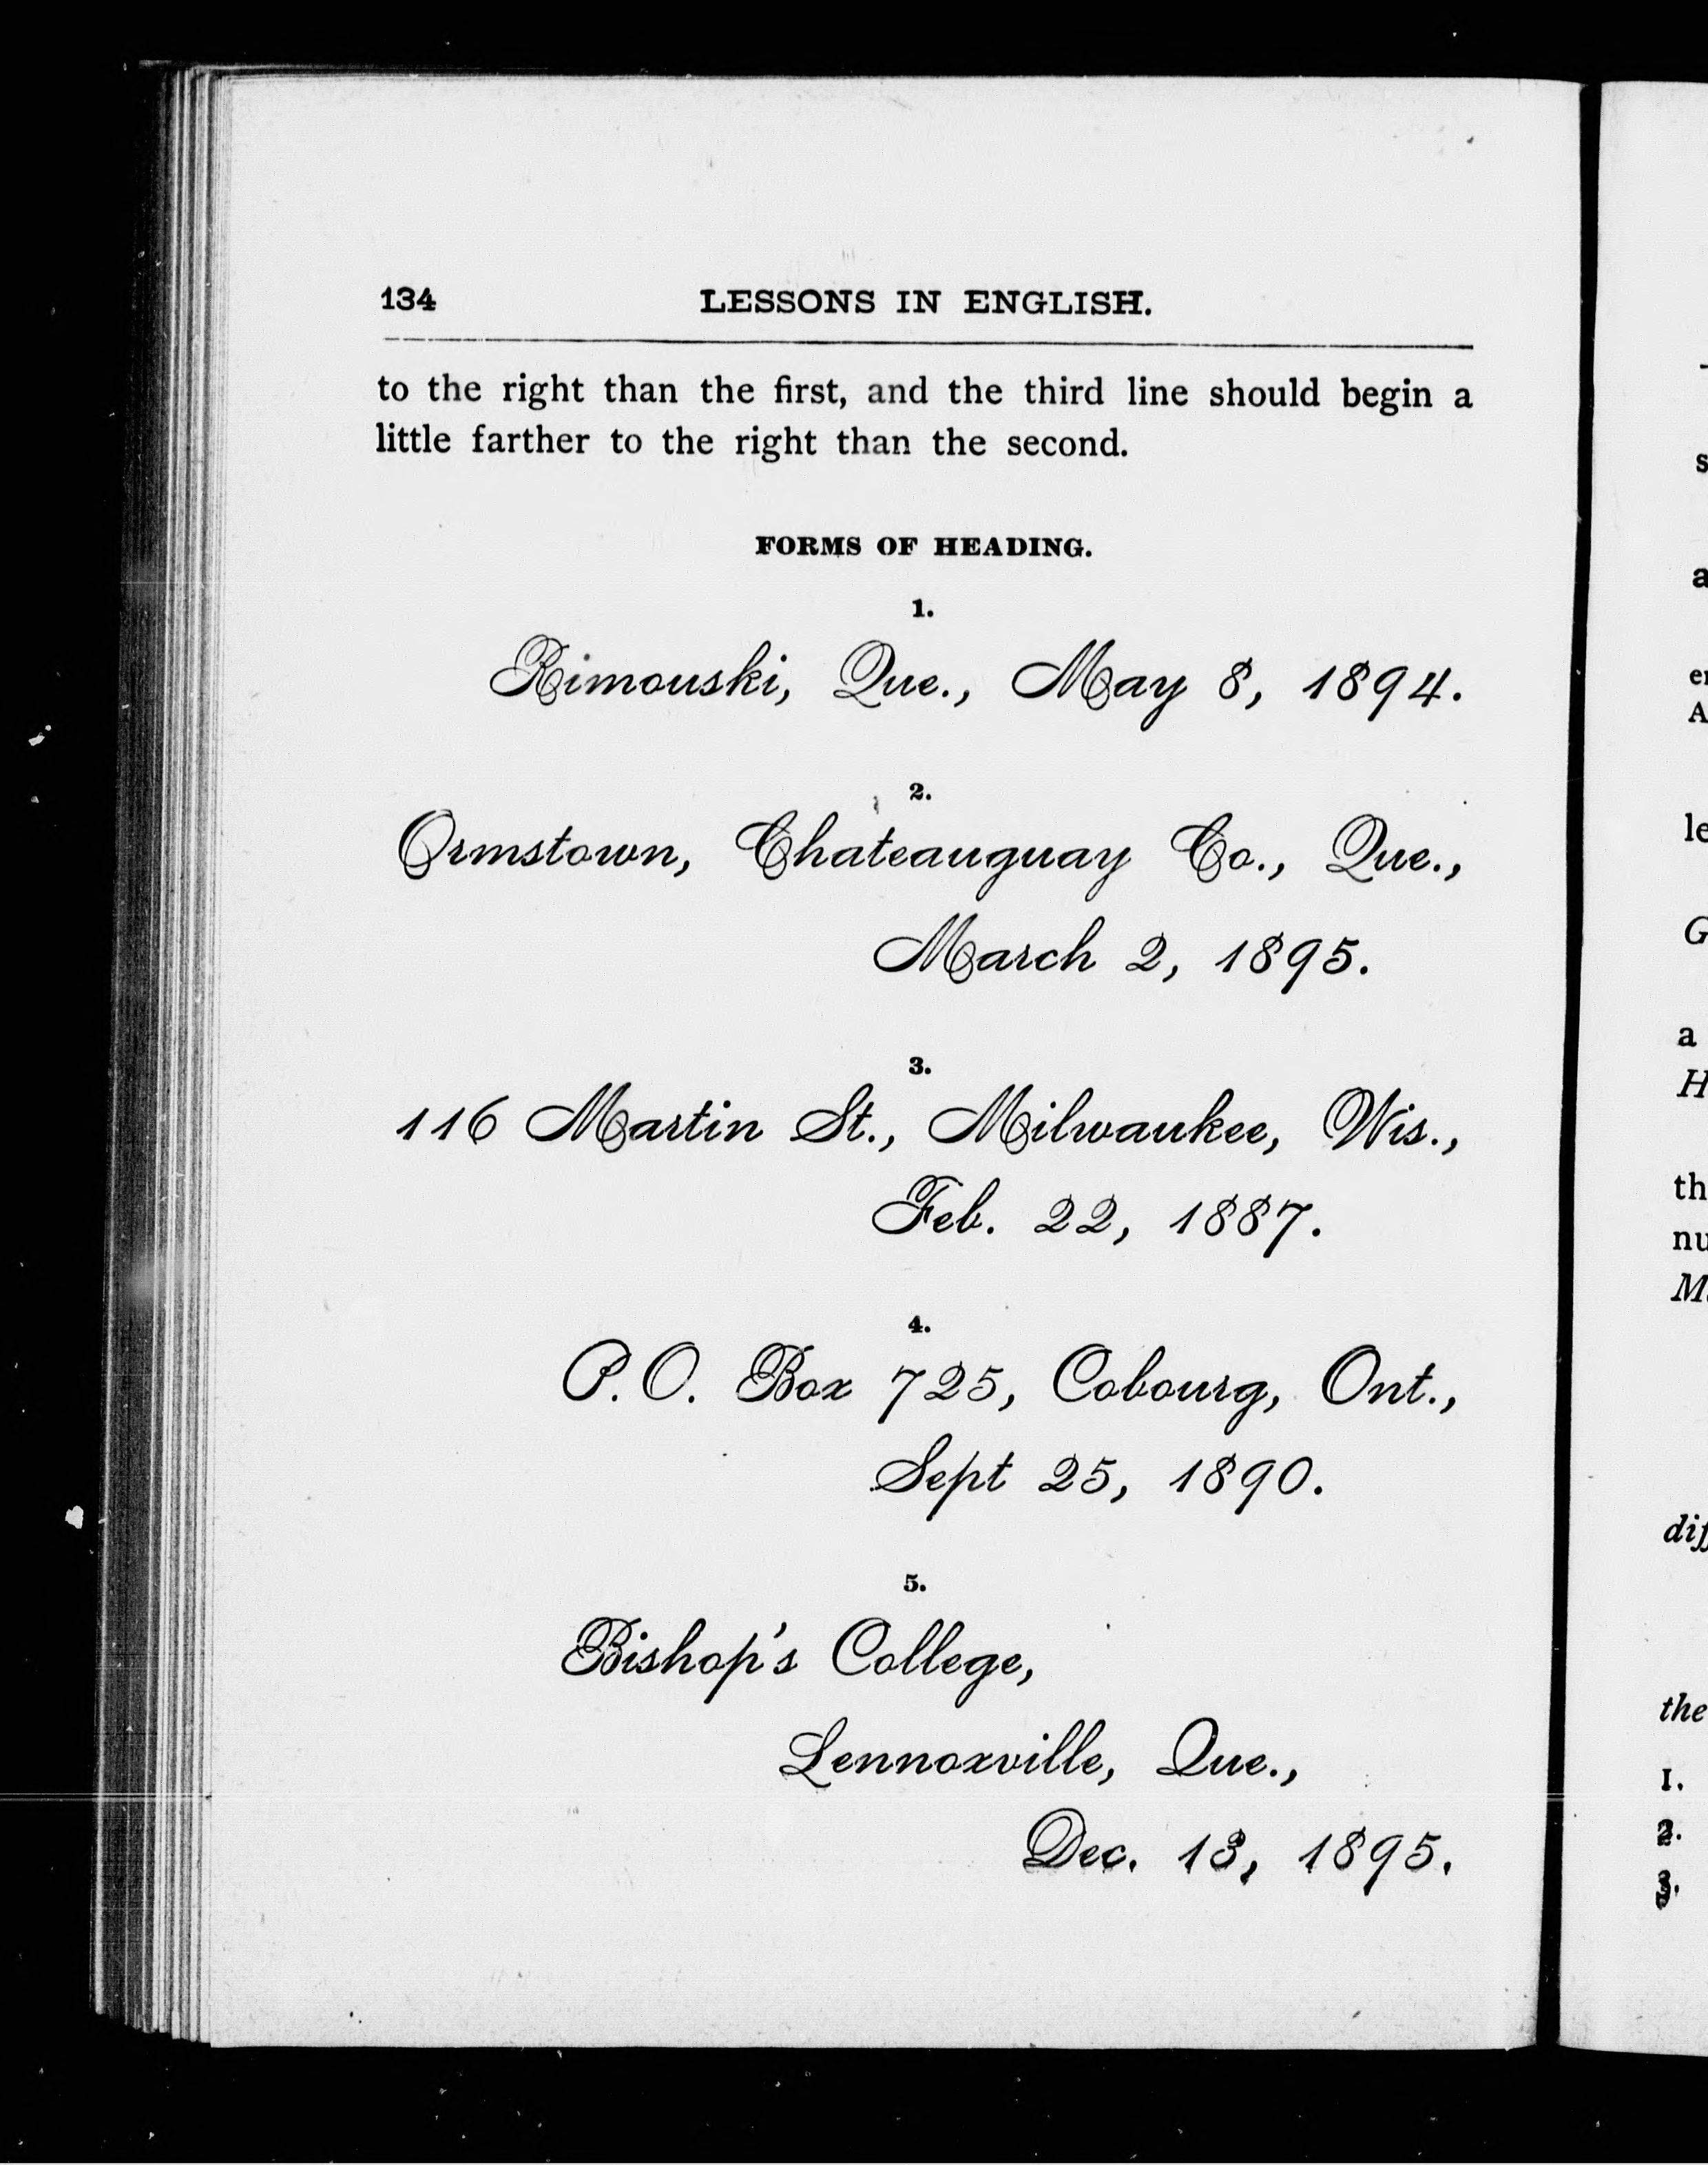 134 LESSONS IN ENGLISH.
to the right than the first, and the third line should begin a
little farther to the right than the second.
FORMS OF HEADING.
1.
Rimouski, Que., May 8, 1894.
2.
Ormstown, Chateauguay Co., Que.,
March 2, 1895.
3.
116 Martin St., Milwaukee, Wis.,
Feb. 22, 1887.
4.
P.O. Box 725, Cobourg, Ont.,
Sept 25, 1890.
5.
Bishop's College,
Lennoxville, Que.,
Dec. 13, 1895.
a
1.
2.
3.